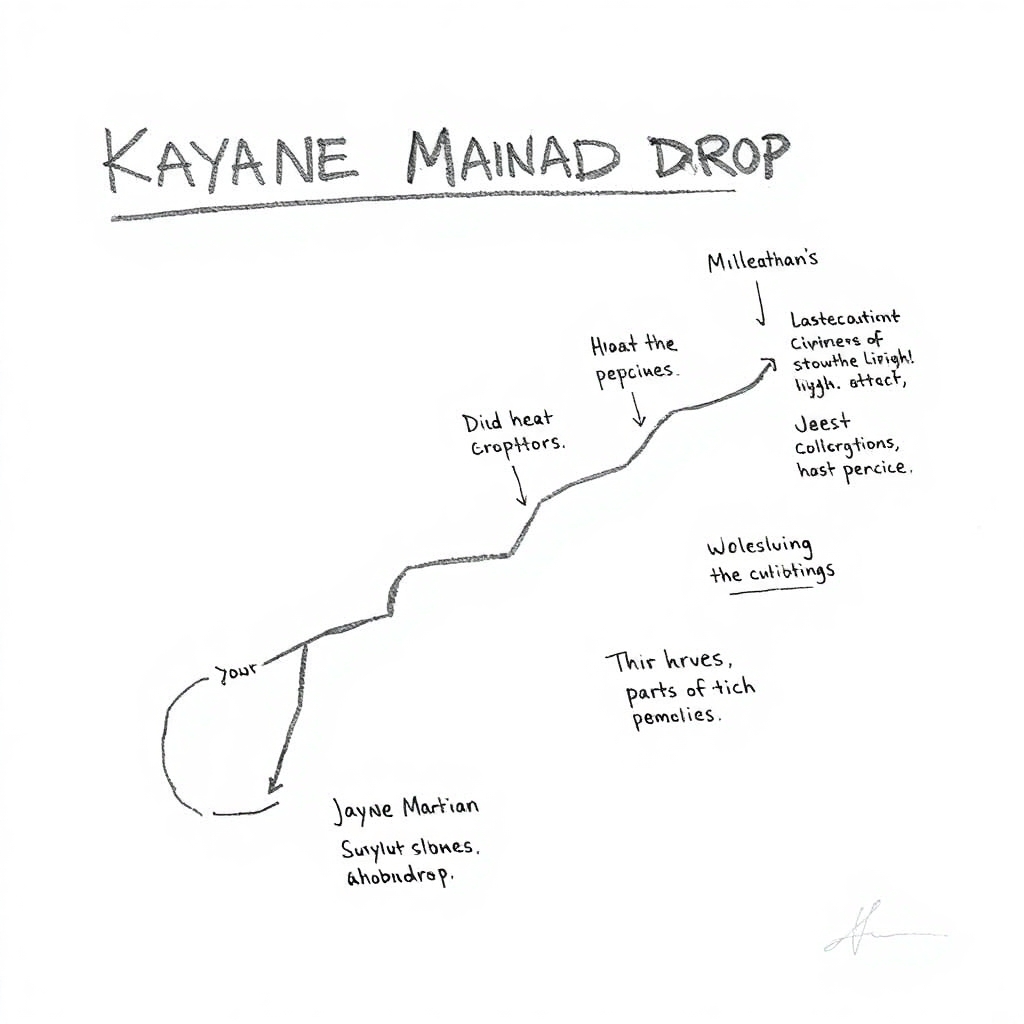 KAYANE MAINAD DROP
Milleathan's
Lastecoutimt
Civiners of
stowthe Livigh!
liygh. attact,
Hioat the
pepcines.
Jeest
Collcrgtions,
hast percice.
Diud heat
Cropttors.
Wolesluing
the cutibtings
your
Thir hrves,
parts of tich
pemolies.
Jayne Martian
Surylut slbnes.
ahobndrop.